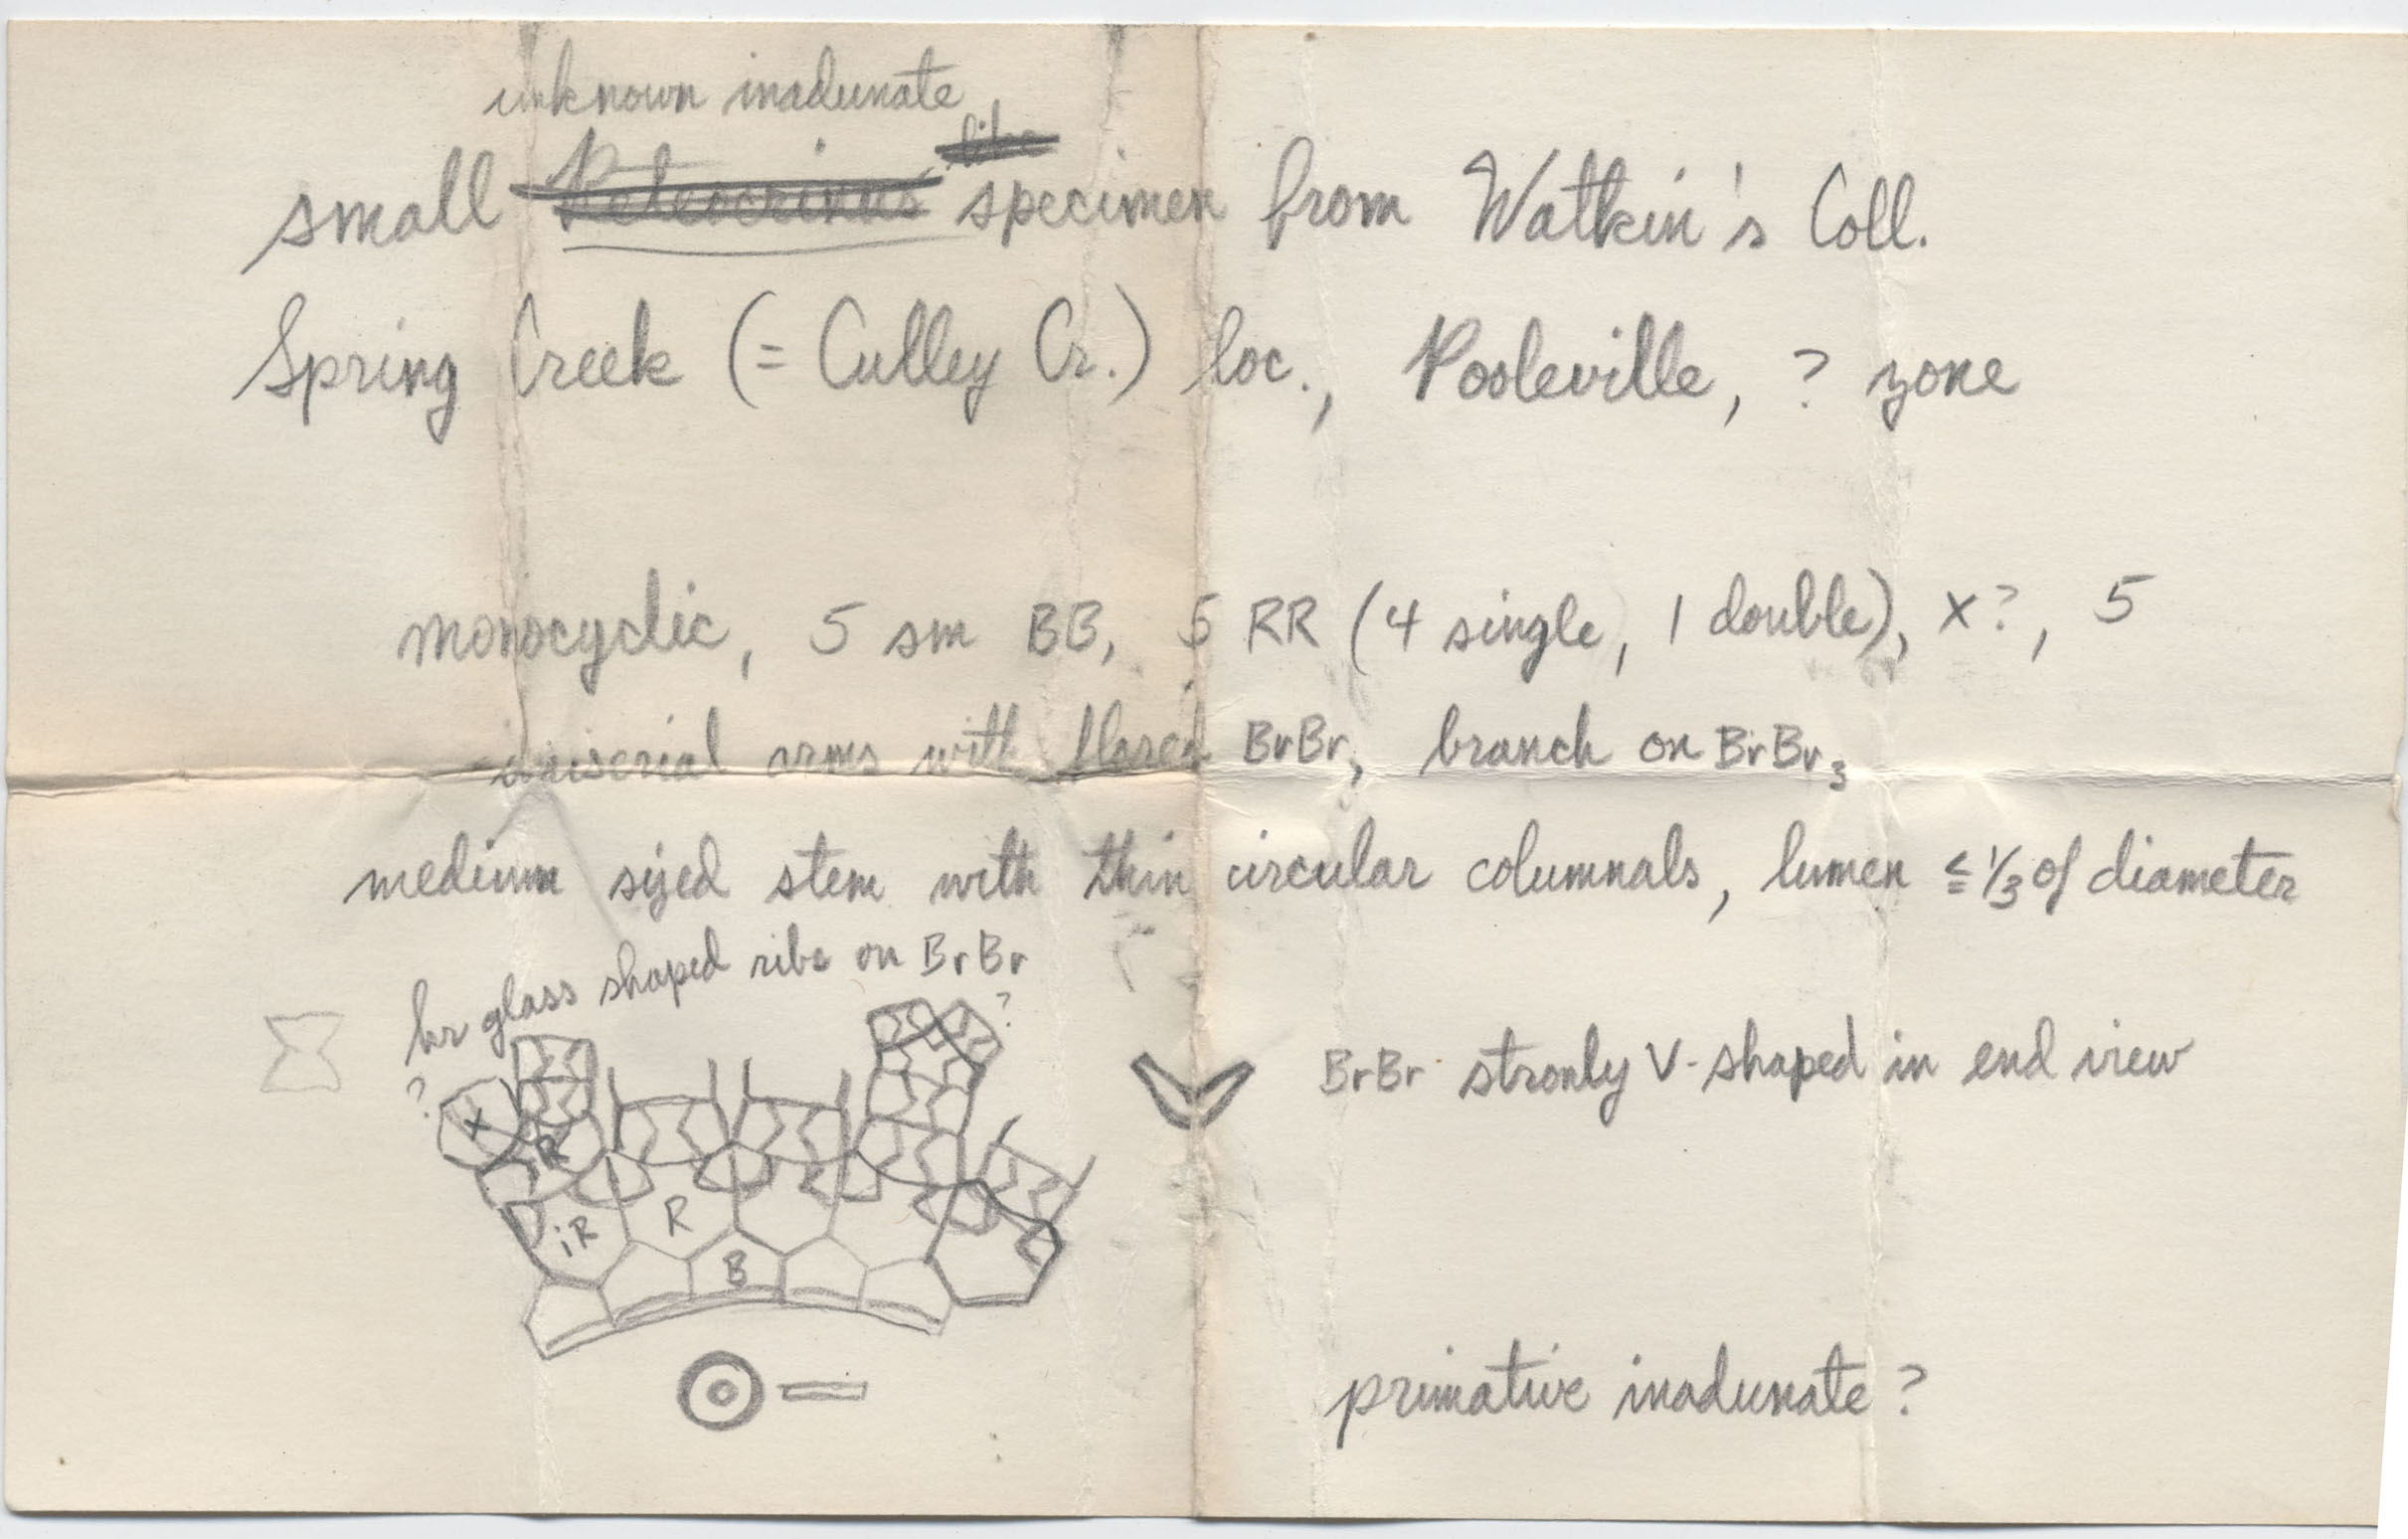 unknown inadunate
like
small specimen from Watkin's Coll.
Spring Creek (= Culley Cr.) loc., Pooleville, ? zone
monocyclic, 5 sm BB, 5 RR (4 single, 1 double), x?, 5
uniserial arms with flared BrBr, branch on BrBr₃
medium sized stem with thin circular columnals, lumen ≦ 1/3 of diameter
hr glass shaped ribs on BrBr
?
BrBr stronly V-shaped in end view
?
x
R
iR
R
B
primative inadunate?